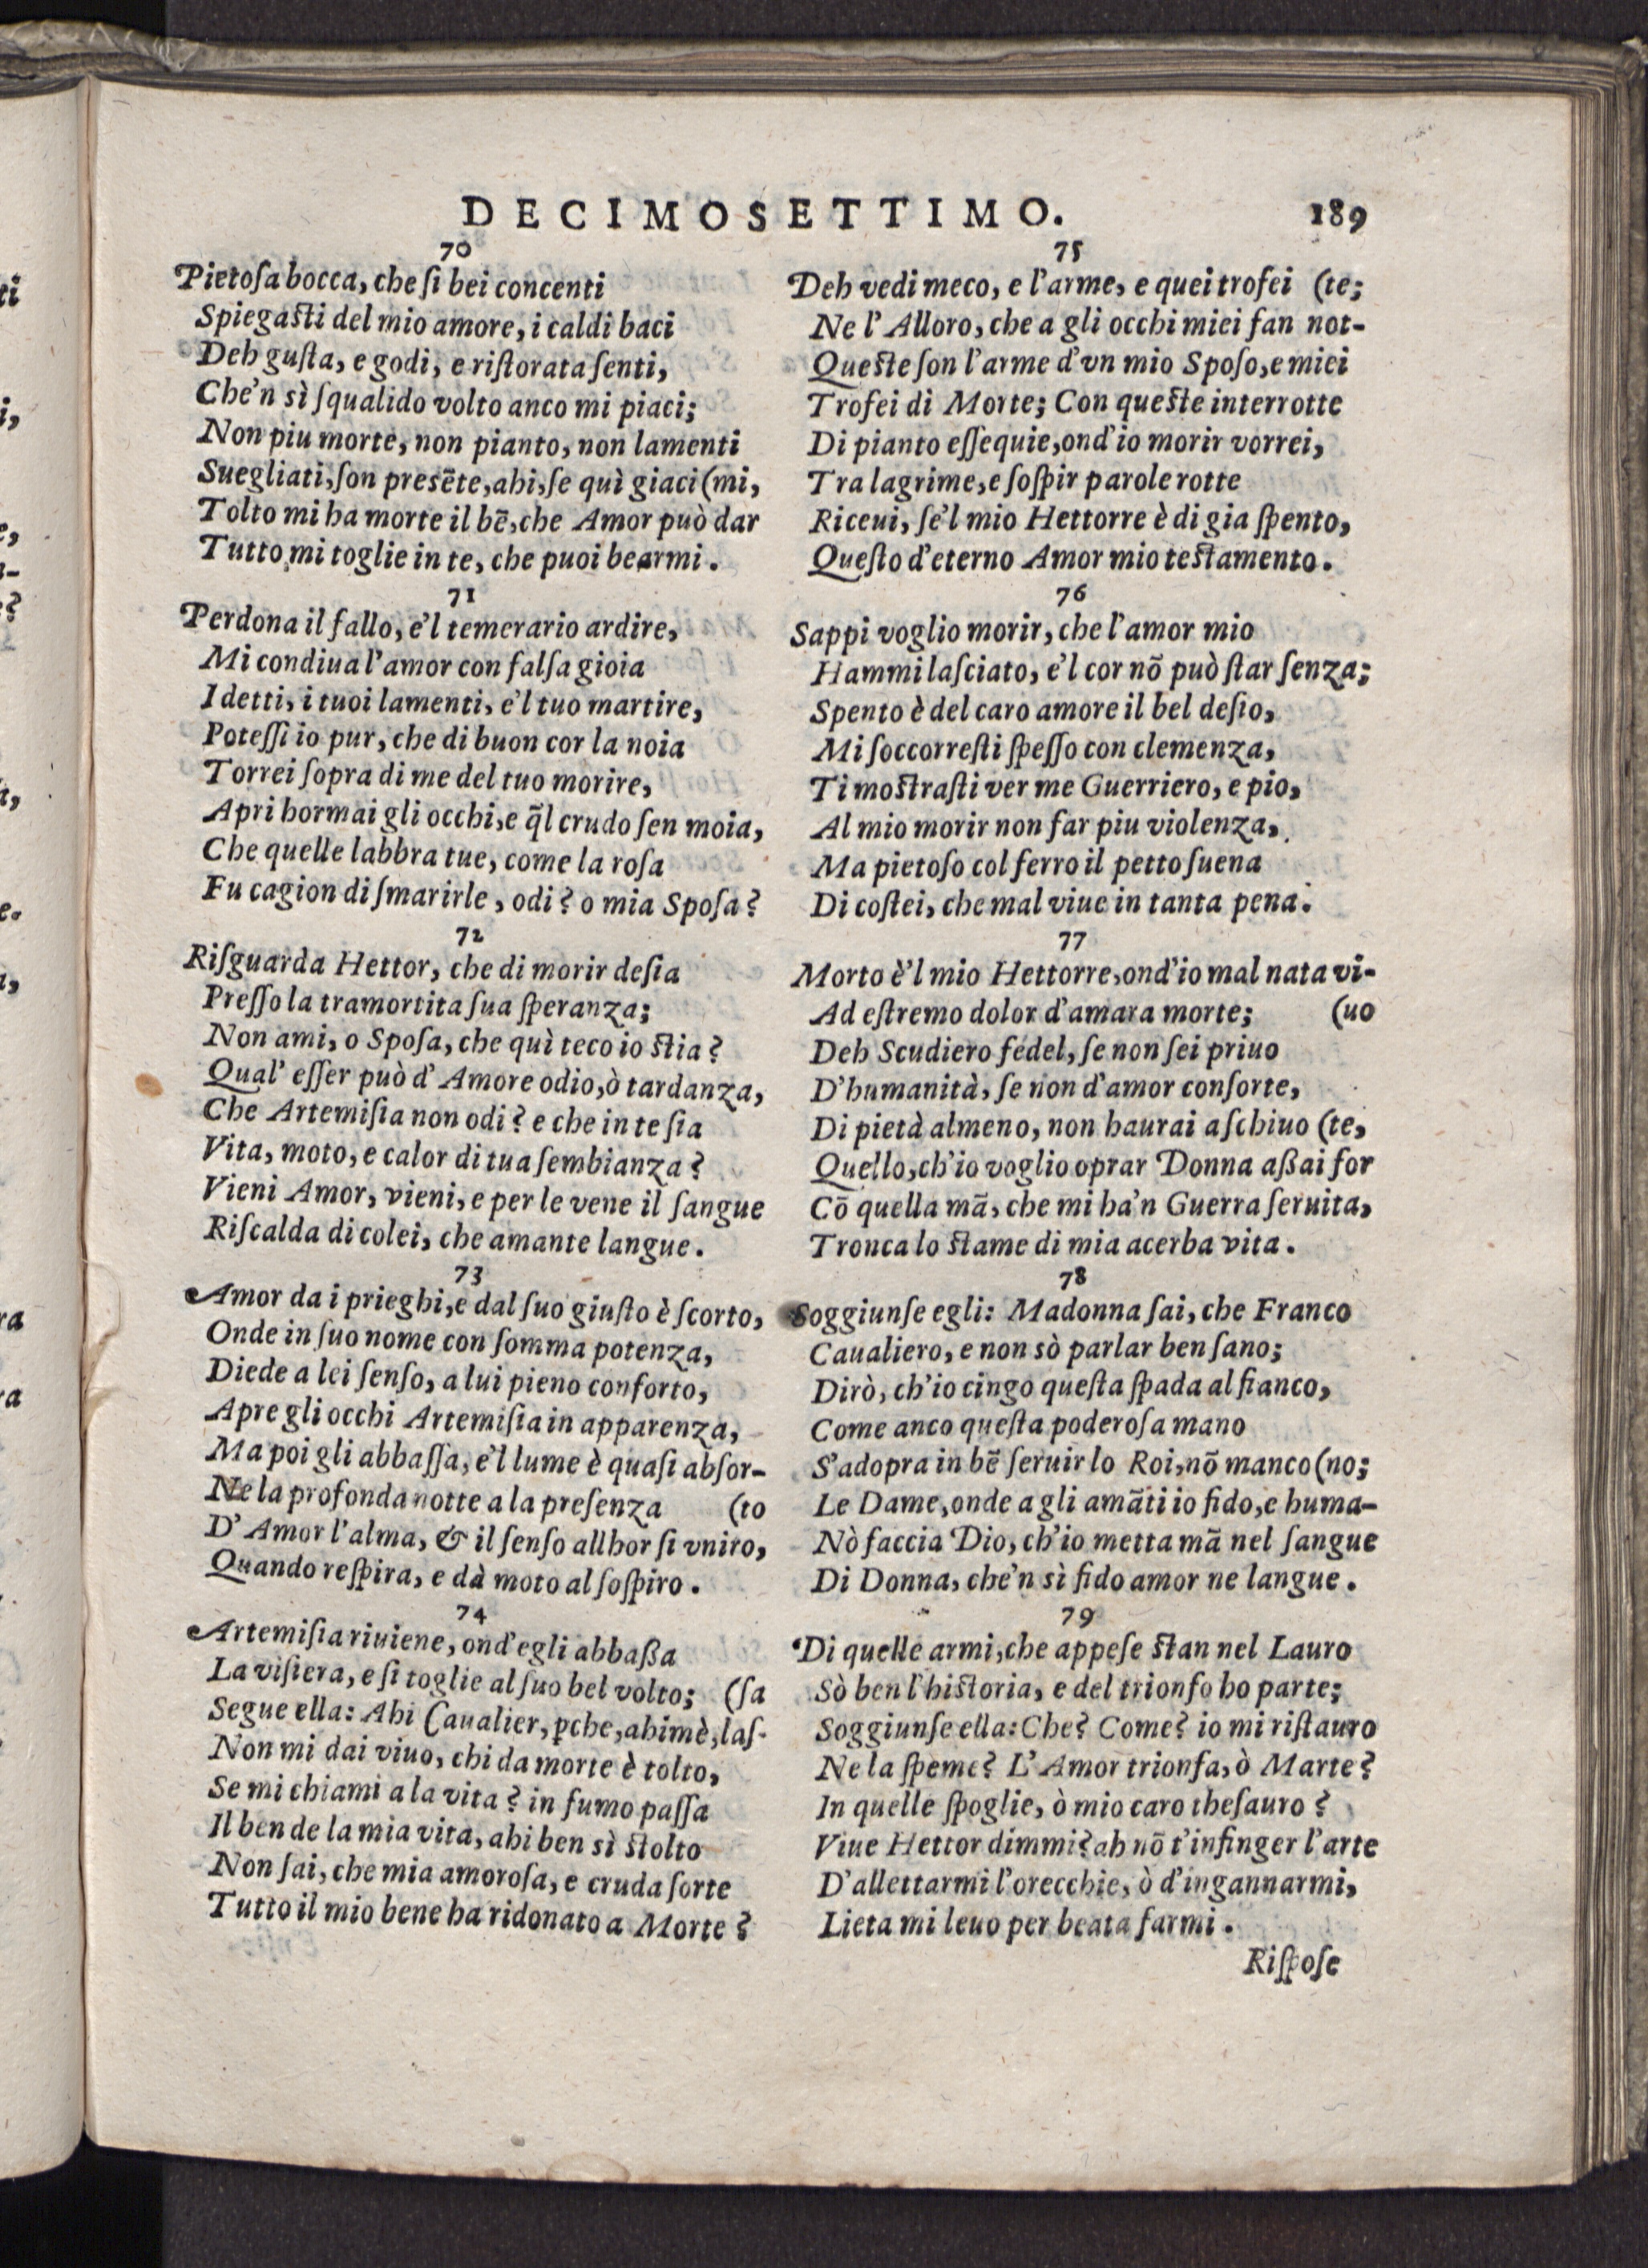 DECIMOSETTIMO. 189
70
Pietoſa bocca, che ſi bei concenti
Spiegaſti del mio amore, i caldi baci
Deh guſta, e godi, e riſtorata ſenti,
Che'n sì ſqualido volto anco mi piaci;
Non piu morte, non pianto, non lamenti
Suegliati, ſon presẽte, ahi, ſe quì giaci (mi,
Tolto mi ha morte il bẽ, che Amor può dar
Tutto mi toglie in te, che puoi bearmi.
71
Perdona il fallo, e'l temerario ardire,
Mi condiua l'amor con falſa gioia
I detti, i tuoi lamenti, e'l tuo martire,
Poteſſi io pur, che di buon cor la noia
Torrei ſopra di me del tuo morire,
Apri hormai gli occhi, e q̃l crudo ſen moia,
Che quelle labbra tue, come la roſa
Fu cagion di ſmarirle, odi? o mia Spoſa?
72
Riſguarda Hettor, che di morir deſia
Preſſo la tramortita ſua ſperanza;
Non ami, o Spoſa, che quì teco io ſtia?
Qual' eſſer può d'Amore odio, ò tardanza,
Che Artemiſia non odi? e che in te ſia
Vita, moto, e calor di tua ſembianza?
Vieni Amor, vieni, e per le vene il ſangue
Riſcalda di colei, che amante langue.
73
Amor da i prieghi, e dal ſuo giuſto è ſcorto,
Onde in ſuo nome con ſomma potenza,
Diede a lei ſenſo, a lui pieno conforto,
Apre gli occhi Artemiſia in apparenza,
Ma poi gli abbaſſa, e'l lume è quaſi abſor-
Ne la profonda notte a la preſenza (to
D'Amor l'alma, & il ſenſo allhor ſi vniro,
Quando reſpira, e dà moto al ſoſpiro.
74
Artemiſia riuiene, ond'egli abbaßa
La viſiera, e ſi toglie al ſuo bel volto; (ſa
Segue ella: Ahi Caualier, ꝑche, ahimè, laſ-
Non mi dai viuo, chi da morte è tolto,
Se mi chiami a la vita? in fumo paſſa
Il ben de la mia vita, ahi ben sì ſtolto
Non ſai, che mia amoroſa, e cruda ſorte
Tutto il mio bene ha ridonato a Morte?
75
Deh vedi meco, e l'arme, e quei trofei (te;
Ne l'Alloro, che a gli occhi miei fan not-
Queſte ſon l'arme d'vn mio Spoſo, e miei
Trofei di Morte; Con queſte interrotte
Di pianto eſſequie, ond'io morir vorrei,
Tra lagrime, e ſoſpir parole rotte
Riceui, ſe'l mio Hettorre è di gia ſpento,
Queſto d'eterno Amor mio teſtamento.
76
Sappi voglio morir, che l'amor mio
Hammi laſciato, e'l cor nõ può ſtar ſenza;
Spento è del caro amore il bel deſio,
Mi ſoccorreſti ſpeſſo con clemenza,
Ti moſtraſti ver me Guerriero, e pio,
Al mio morir non far piu violenza,
Ma pietoſo col ferro il petto ſuena
Di coſtei, che mal viue in tanta pena.
77
Morto è'l mio Hettorre, ond'io mal nata vi-
Ad eſtremo dolor d'amara morte; (uo
Deh Scudiero fedel, ſe non ſei priuo
D'humanità, ſe non d'amor conſorte,
Di pietà almeno, non haurai a ſchiuo (te,
Quello, ch'io voglio oprar Donna aßai for
Cõ quella mã, che mi ha'n Guerra ſeruita,
Tronca lo ſtame di mia acerba vita.
78
Soggiunſe egli: Madonna ſai, che Franco
Caualiero, e non sò parlar ben ſano;
Dirò, ch'io cingo queſta ſpada al fianco,
Come anco queſta poderoſa mano
S'adopra in bẽ ſeruir lo Roi, nõ manco (no;
Le Dame, onde a gli amãti io fido, e huma-
Nò faccia Dio, ch'io metta mã nel ſangue
Di Donna, che'n sì fido amor ne langue.
79
Di quelle armi, che appeſe ſtan nel Lauro
Sò ben l'hiſtoria, e del trionfo ho parte;
Soggiunſe ella: Che? Come? io mi riſtauro
Ne la ſpeme? L'Amor trionfa, ò Marte?
In quelle ſpoglie, ò mio caro theſauro?
Viue Hettor dimmi? ah nõ t'infinger l'arte
D'allettarmi l'orecchie, ò d'ingannarmi,
Lieta mi leuo per beata farmi.
Riſpoſe